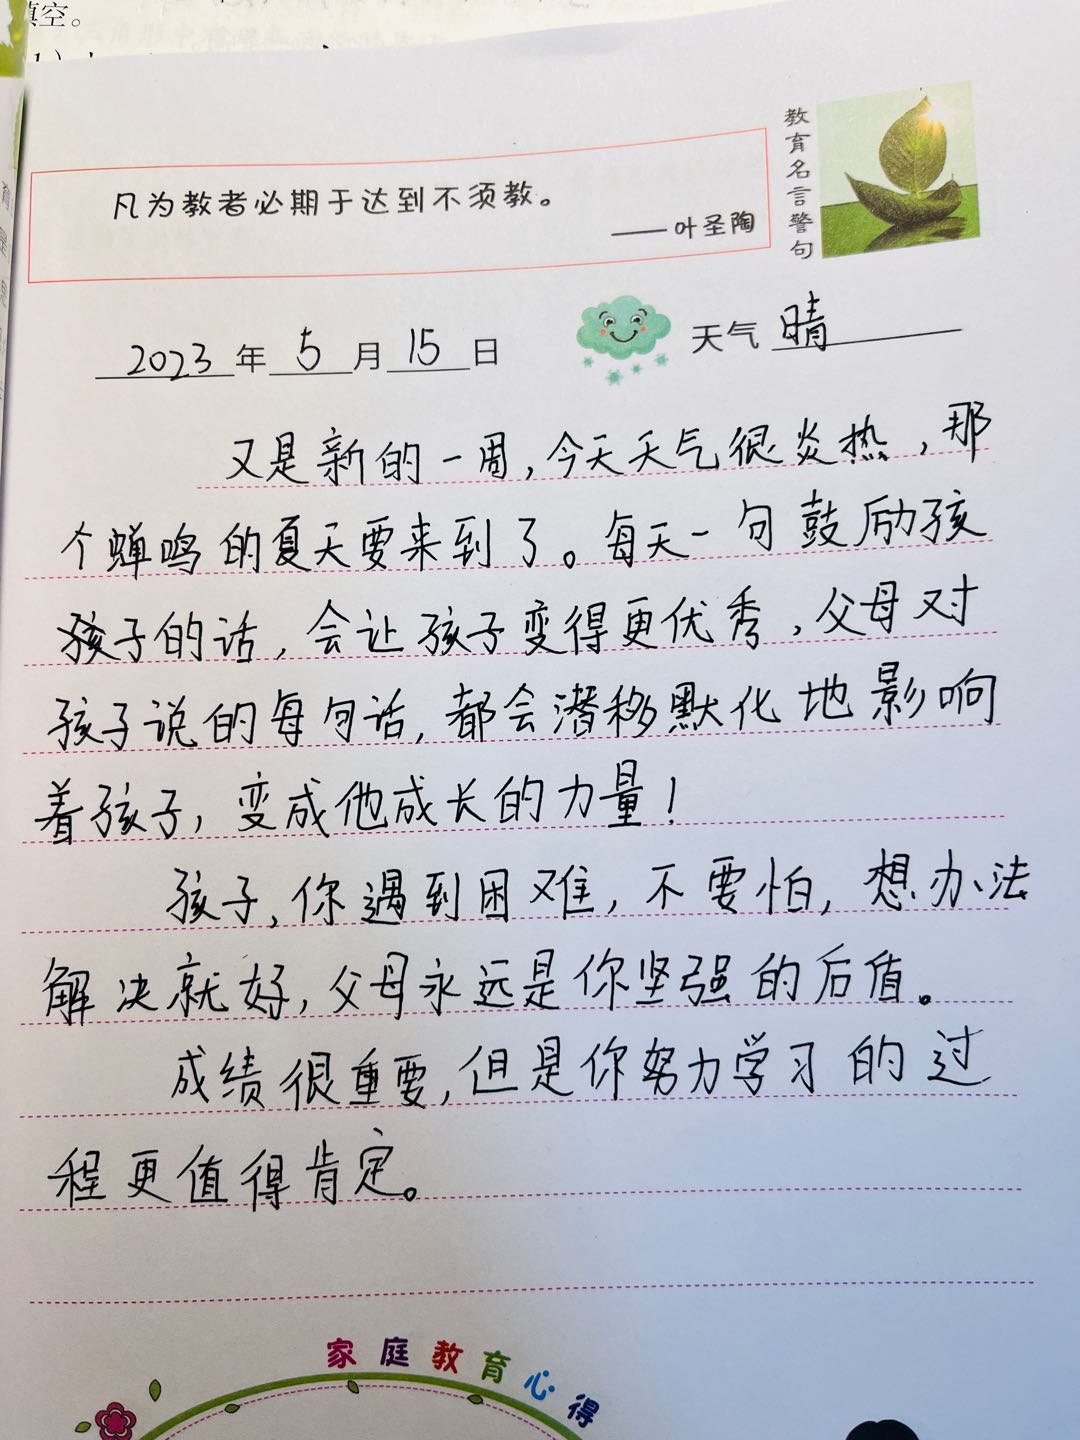 填空。
教育名言警句
凡为教者必期于达到不须教。
——叶圣陶
2023年5月15日
天气 晴
又是新的一周,今天天气很炎热,那
个蝉鸣的夏天要来到了。每天一句鼓励孩
孩子的话,会让孩子变得更优秀,父母对
孩子说的每句话,都会潜移默化地影响
着孩子,变成他成长的力量!
孩子,你遇到困难,不要怕,想办法
解决就好,父母永远是你坚强的后值。
成绩很重要,但是你努力学习的过
程更值得肯定。
家庭教育心得